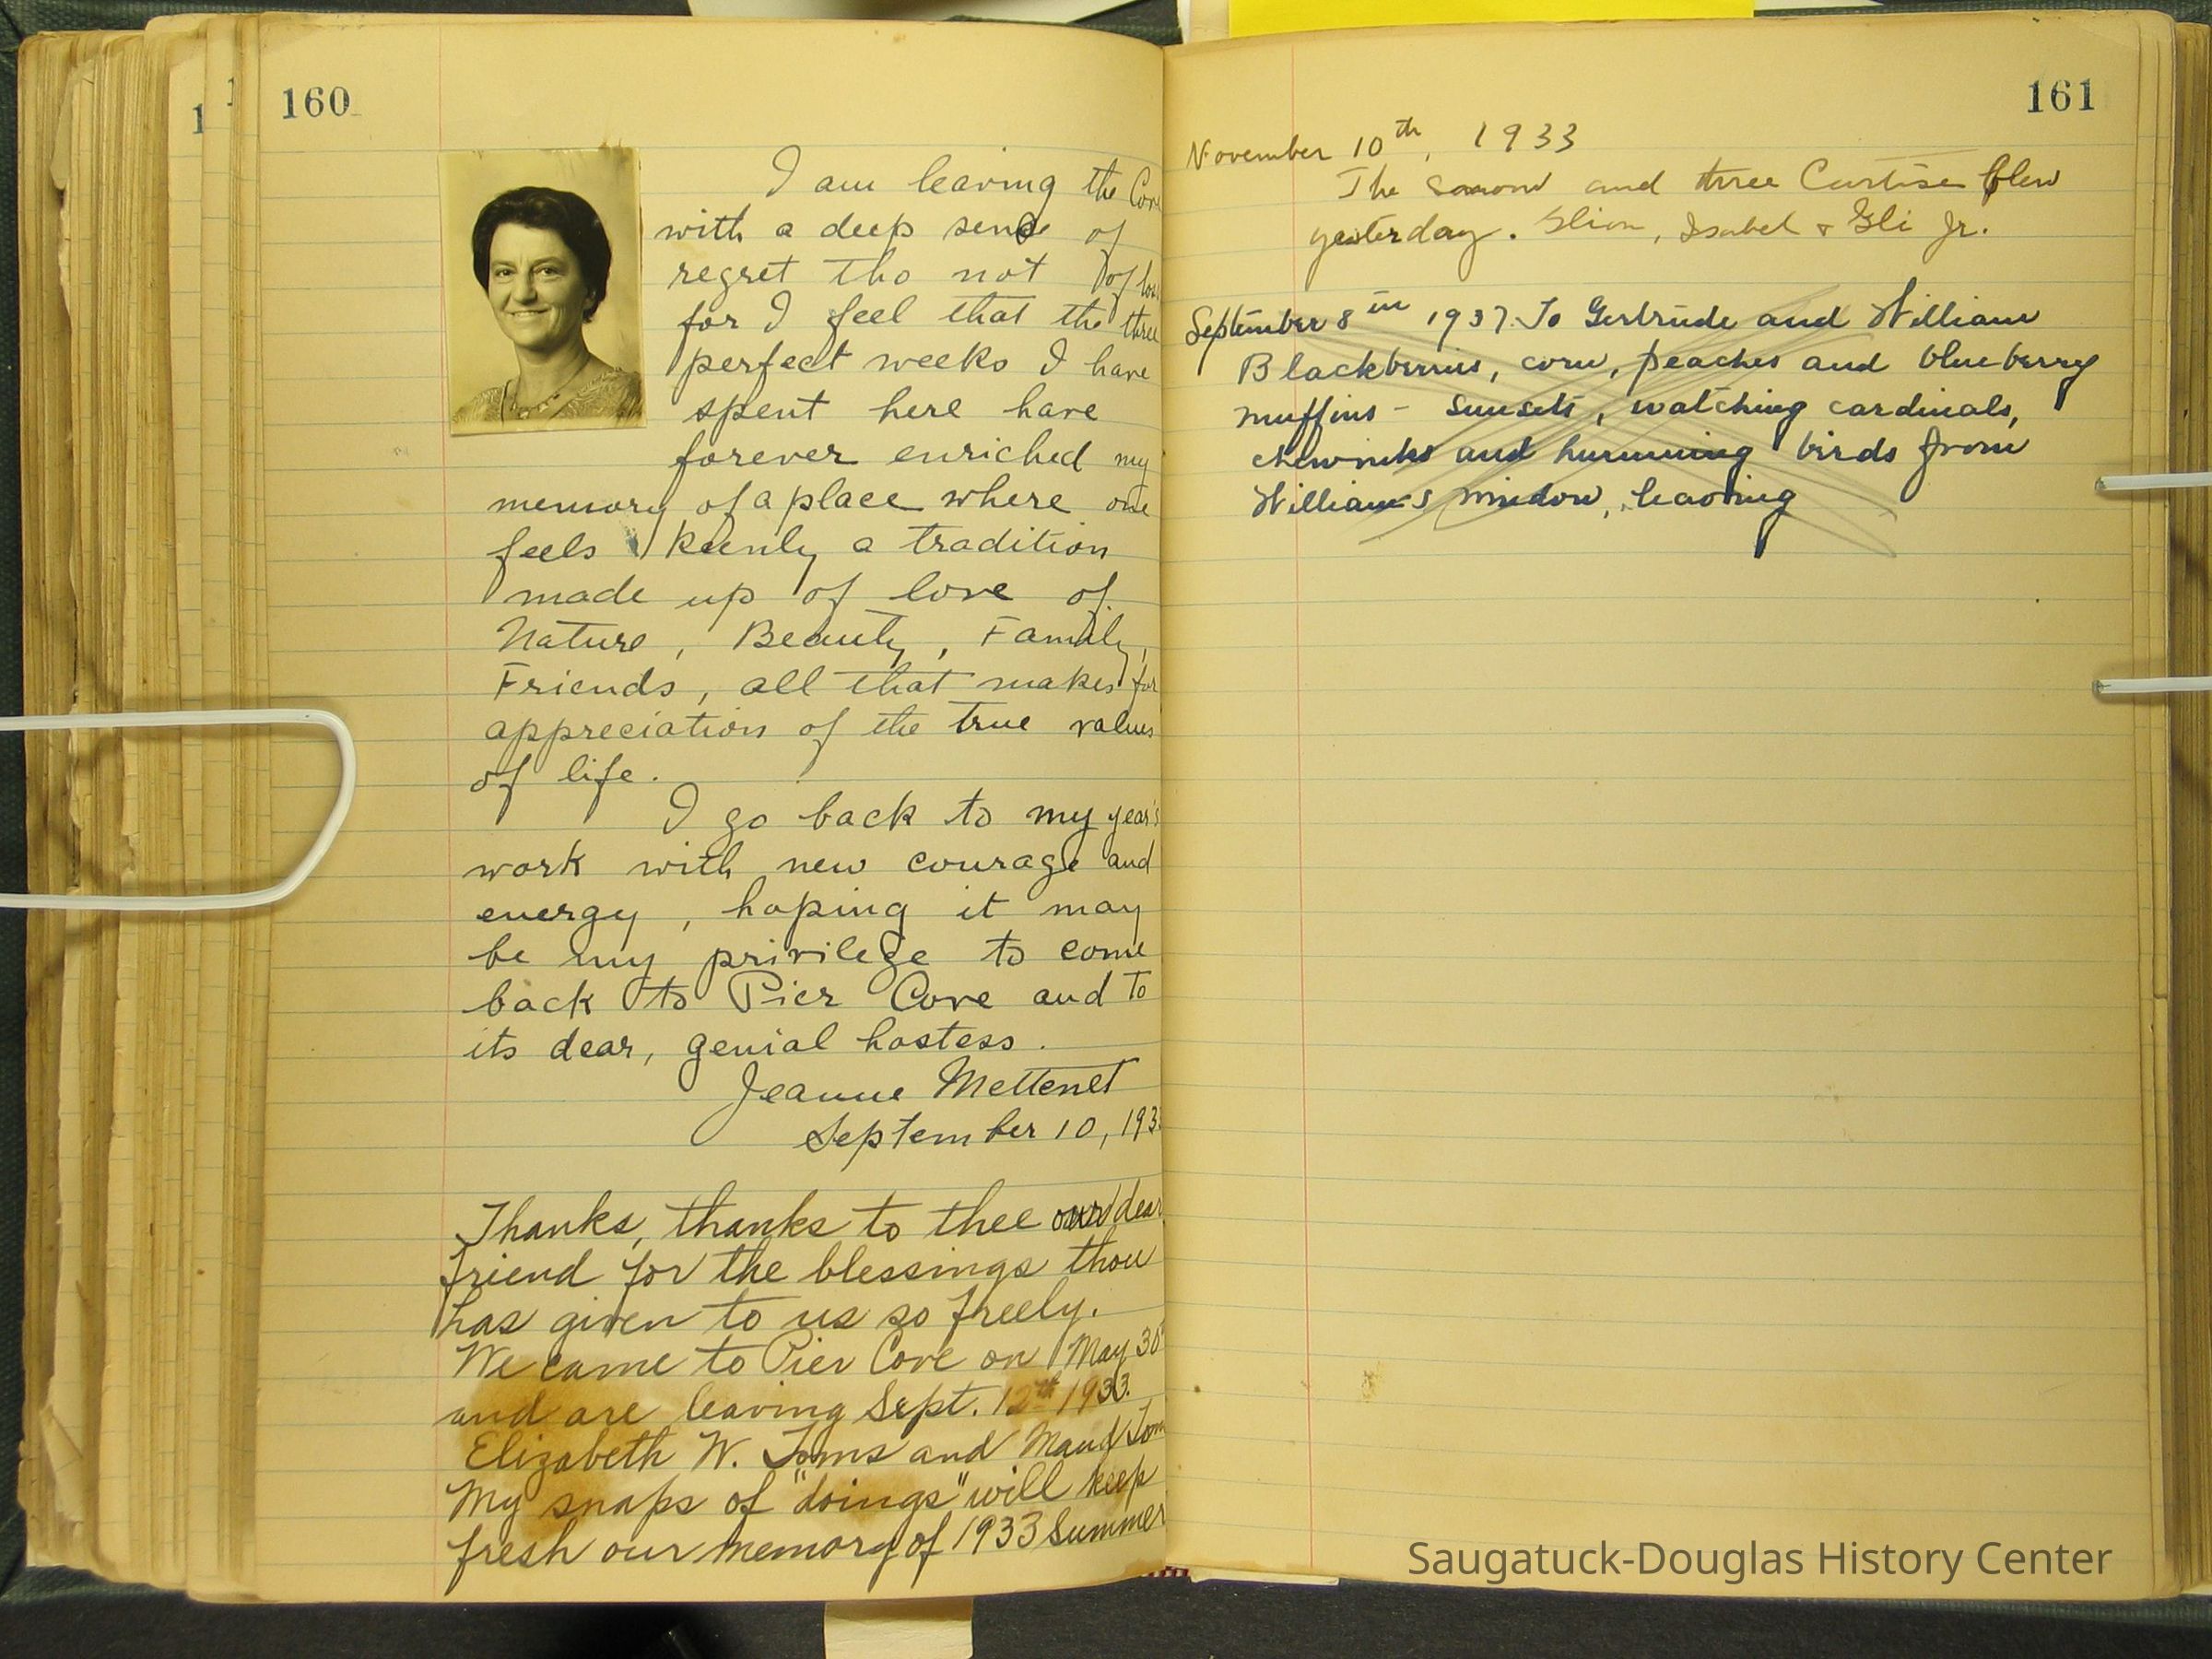 160
I am leaving the Cove
with a deep sense of
regret tho not of loss
for I feel that the three
perfect weeks I have
spent here have
forever enriched my
memory of a place where one
feels keenly a tradition
made up of love of
Nature, Beauty, Family,
Friends, all that makes for
appreciation of the true values
of life.
I go back to my year's
work with new courage and
energy, hoping it may
be my privilege to come
back to Pier Cove and to
its dear, genial hostess.
Jeanne Mettenet
September 10, 193
Thanks, thanks to thee our dear
friend for the blessings thou
has given to us so freely.
We came to Pier Cove on May 30
and are leaving Sept. 12th 1933.
Elizabeth W. Toms and Maud Tom
My snaps of "doings" will keep
fresh our memory of 1933 Summer
161
November 10th, 1933
The and three Curtises flew
yesterday. Isabel + Eli Jr.
September 8 1937. To Gertrude and William
Blackberries, corn, peaches and blueberry
muffins - sunsets, watching cardinals,
chewinks and humming birds from
William's window, leaving
Saugatuck-Douglas History Center